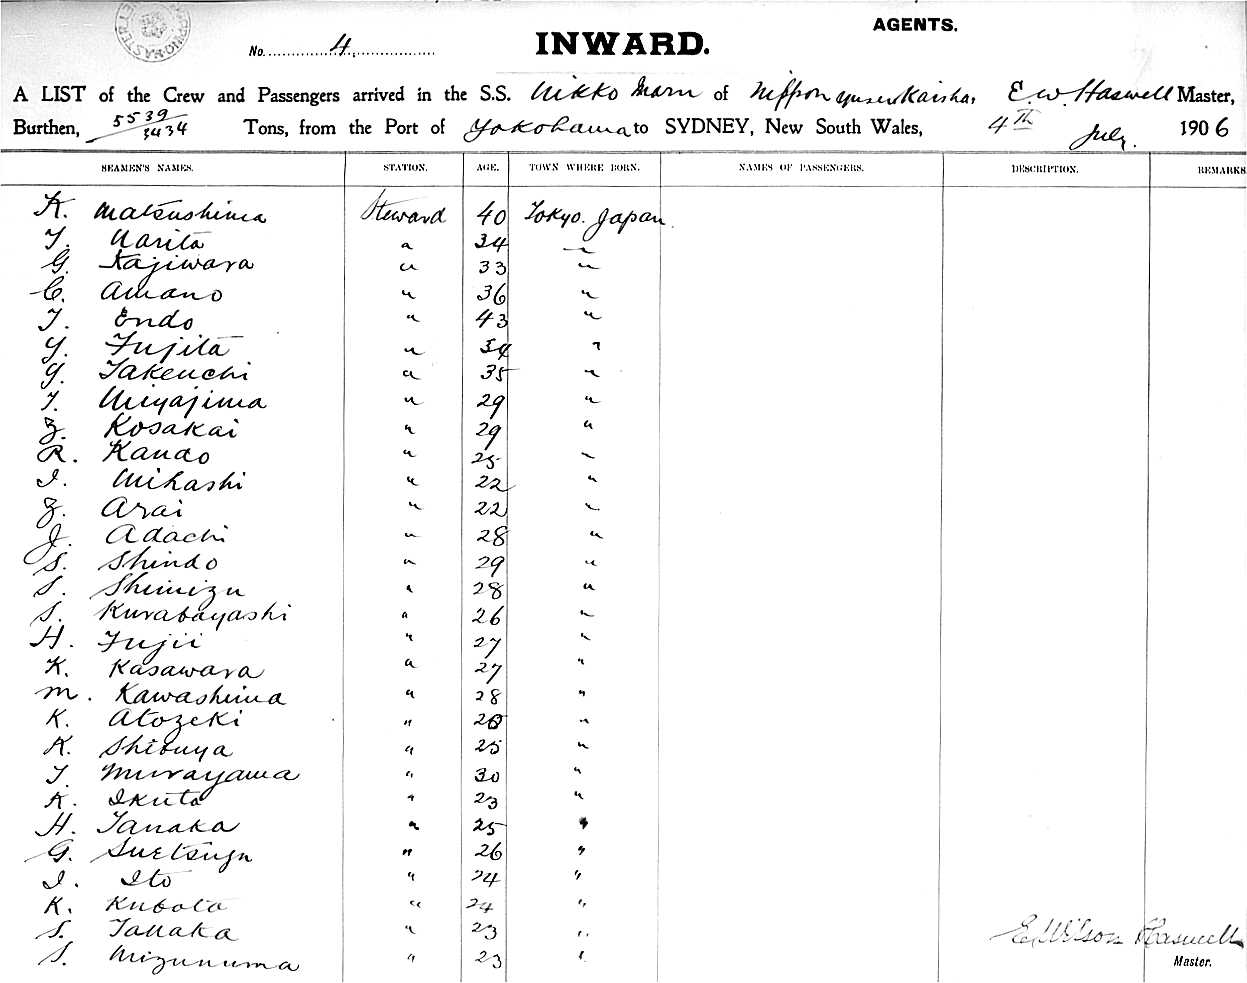 AGENTS.
No. 4. INWARD.
A LIST of the Crew and Passengers arrived in the S.S. Nikko Maru of Nippon Yusen Kaisha, E. W. Haswell Master,
Burthen, 5539/3434 Tons, from the Port of Yokohama to SYDNEY, New South Wales, 4th July. 1906
SEAMEN'S NAMES. STATION. AGE. TOWN WHERE BORN. NAMES OF PASSENGERS. DESCRIPTION. REMARKS
K. Matsushima Steward 40 Tokyo. Japan.
T. Narita " 34 "
G. Kajiwara " 33 "
C. Amano " 36 "
T. Endo " 43 "
Y. Fujita " 34 "
Y. Takeuchi " 35 "
T. Miyajima " 29 "
Z. Kosakai " 29 "
R. Kando " 25 "
I. Mihashi " 22 "
Z. Arai " 22 "
J. Adachi " 28 "
S. Shindo " 29 "
S. Shimizu " 28 "
S. Kurabayashi " 26 "
H. Fujii " 27 "
K. Kasawara " 27 "
M. Kawashima " 28 "
K. Atozeki " "
K. Shibuya " 25 "
T. Murayama " 30 "
K. Ikuta " 23 "
H. Tanaka " 25 "
G. Suetsugu " 26 "
I. Ito " 24 "
K. Kubota " 24 "
S. Tanaka " 23 "
S. Mizunuma " 23 "
E. Wilson Haswell
Master.